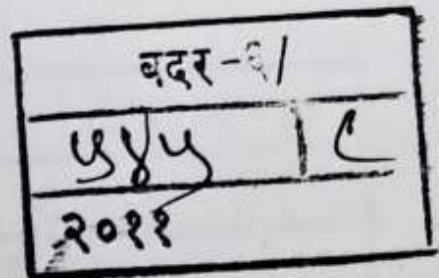 बदर-९/
५४५ ८
२०११